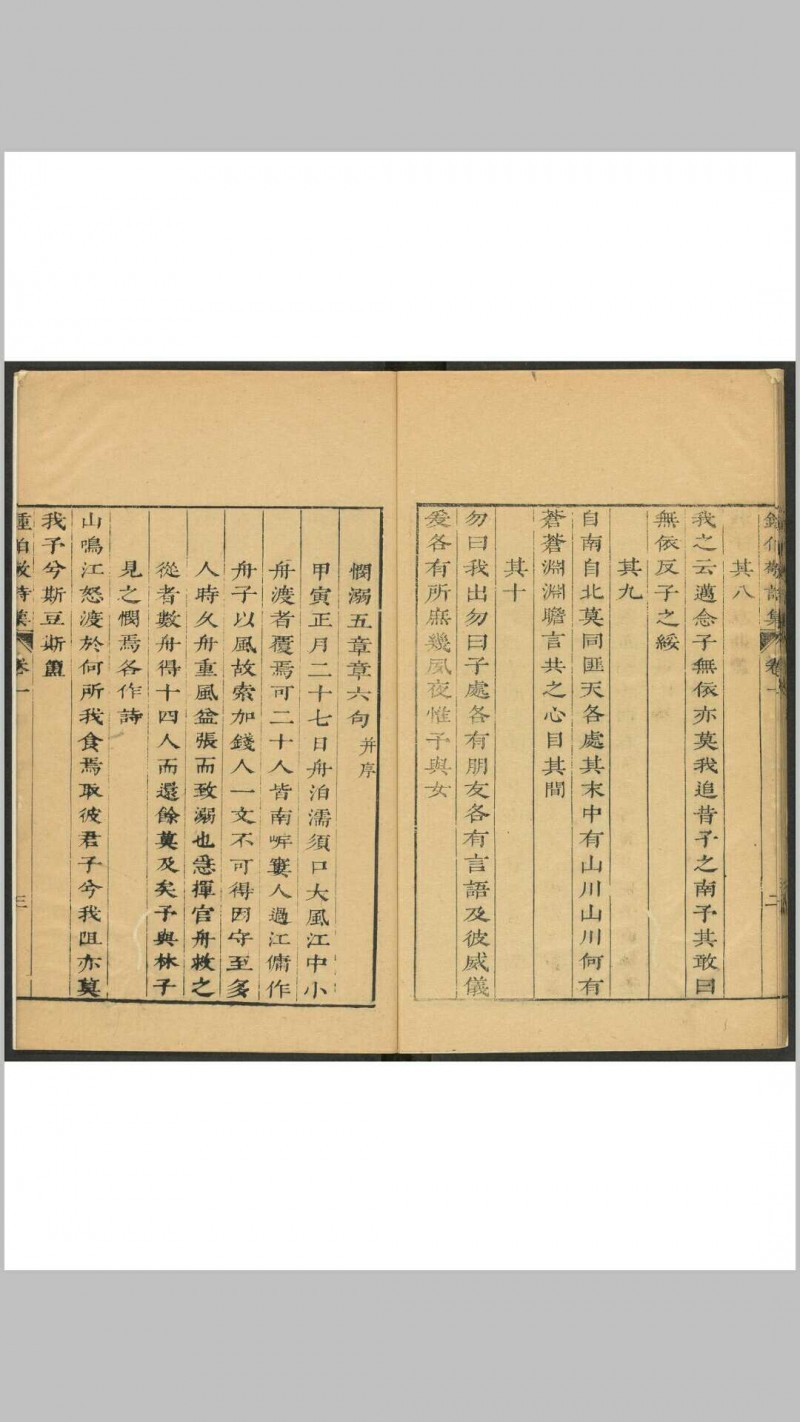 鍾伯敬詩集 卷一 二
其八
我之云邁念子無依亦莫我追昔子之南予其敢曰
無依反子之綏
其九
自南自北莫同匪天各處其末中有山川山川何有
蒼蒼淵淵瞻言共之心目其間
其十
勿曰我出勿曰子處各有朋友各有言語及彼威儀
爰各有所庶幾夙夜惟予與女
憫溺五章章六句并序
甲寅正月二十七日舟泊濡須口大風江中小
舟渡者覆焉可二十人皆南㟁窶人過江傭作
舟子以風故索加錢人一文不可得因守至多
人時久舟重風益張而致溺也急揮官舟救之
從者數舟得十四人而還餘莫及矣予與林子
見之憫焉各作詩
山鳴江怒渡於何所我食焉取彼君子兮我阻亦莫
我予兮斯豆斯簠
鍾伯敬詩集 卷一 三